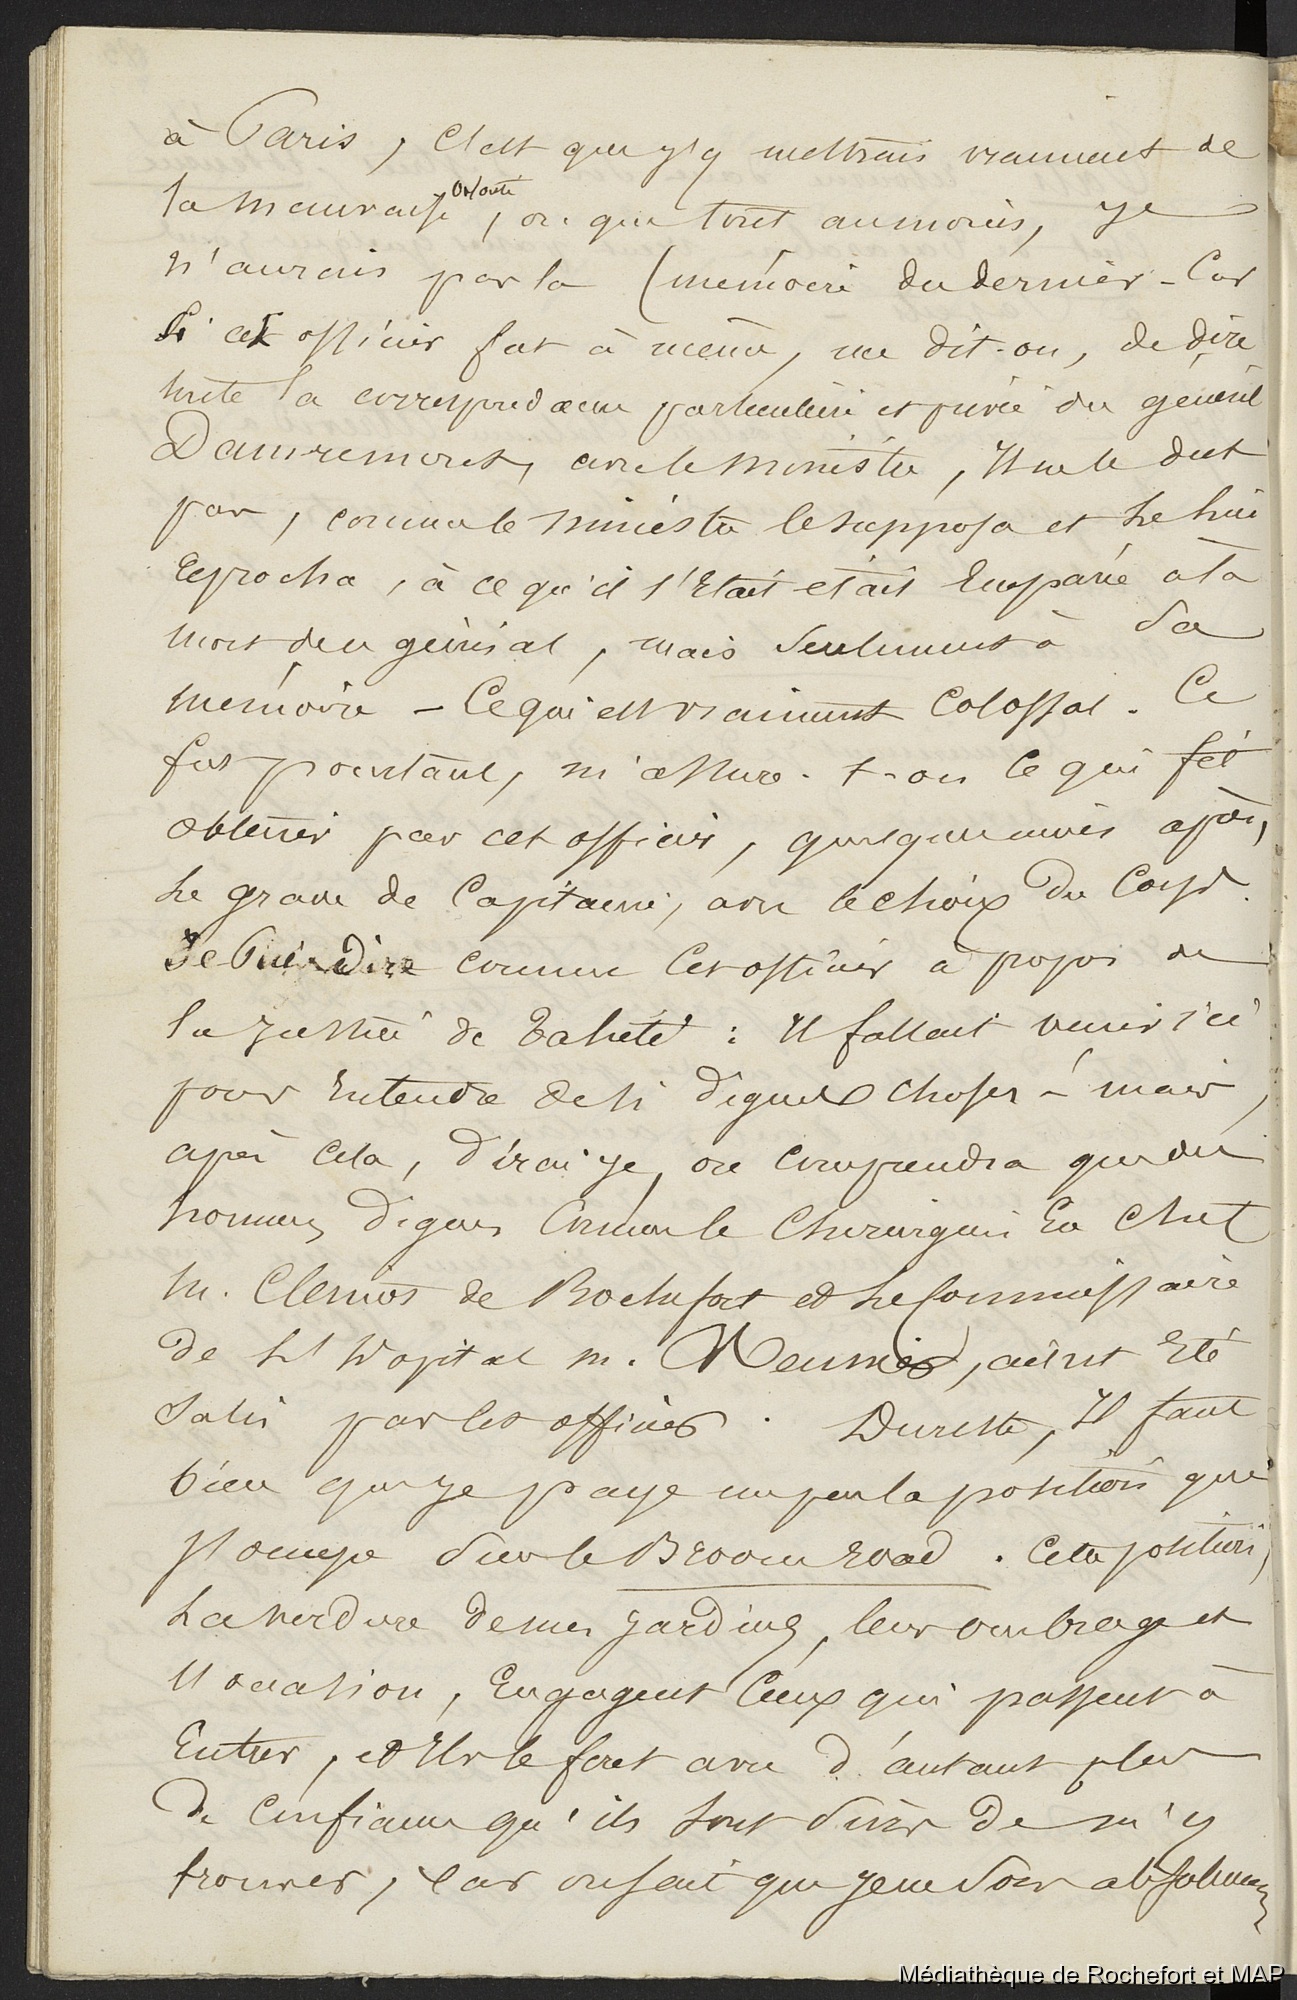 à Paris, C'est que j'y mettrais vraiment de
la mauvaise volonté, ou que tout au moins, je
n'aurais pas la (mémoire du dernier - Car
Si cet officier fut à même, me dit-on, de dire
toute la correspondance particulière et privée du général
Damremont, avec le Ministre, Il ne le dut
pas, comme le Ministre le supposa et le lui
reprocha, à ce qu'il s'Etait était Emparé à la
mort du général, mais Seulement à Sa
mémoire - Ce qui est vraiment Colossal. Ce
fut pourtant, m'assure-t-on Ce qui fit
obtenir par cet officier, quelques mois après,
Le grade de Capitaine, avec le choix du Corps.
Je Puis Dire comme Cet officier à propos de
la Justice de Tahiti : Il fallait venir ici
pour Entendre de Si dignes choses - mais,
après Cela, dirai je, on Comprendra que des
hommes dignes Comme le Chirurgien En Chef
M. Clémot de Rochefort et Le Commissaire
de L'Hopital M. Meunier, aient Eté
Salis par les officiers. Du reste, Il faut
bien que je paye un peu la position que
J'occupe Sur le Broom road. Cette position,
La verdure de mes Jardins, leur ombrage et
l'occasion, Engagent Ceux qui passent à
Entrer, et Ils le font avec d'autant plus
de Confiance qu'ils Sont Surs De m'y
trouver, Car on sait que je ne Sors absolument
Médiathèque de Rochefort et MAP